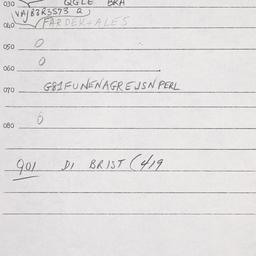 030 QGLE BRA
VA/83R3573 a
040 FARDEK+ALES
050 0
060 0
070 G81FUNENAGREJSNPERL
080 0
901 DI BRIST (4/9